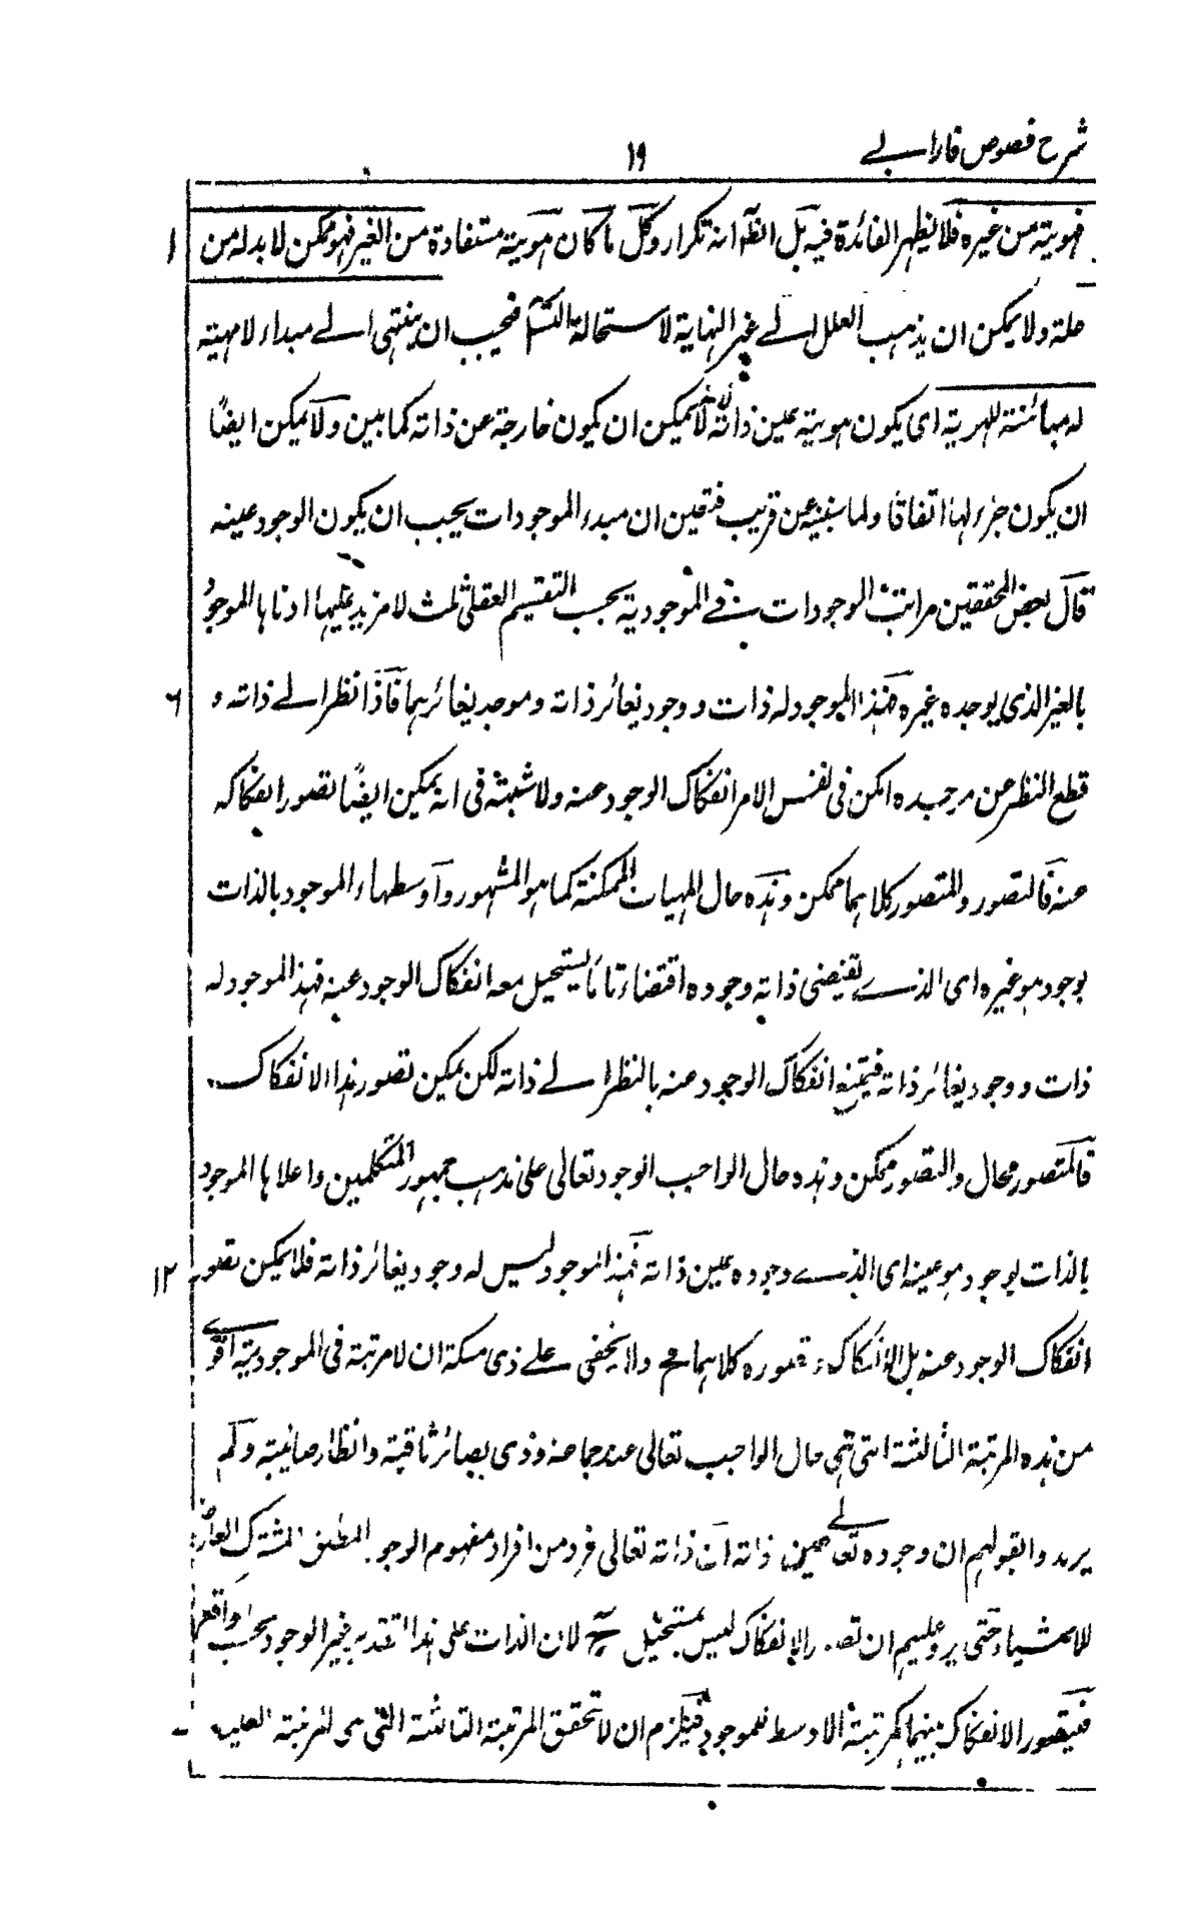 شرح فصوص فارابے
١٩
فهويته من غيره فلا يظهر الفائدة فيه بل الظاهر انه تكرار وكل ما كان هويته مستفادة من الغير فهو ممكن لا بد له من ١
علة ولا يمكن ان يذهب العلل الے غير النهاية لاستحالة التس فيجب ان ينتهى الے مبداء لا مهية
له مبائنة للهوية اى يكون هويته عين ذاته لا يمكن ان يكون خارجة عن ذاته كما بين ولا يمكن ايضًا
ان يكون جزء لها اتفاقا ولما سنبينه عن قريب فتعين ان مبدء الموجودات يجب ان يكون الوجود عينه
قال بعض المحققين مراتب الموجودات فے الموجودية بحسب التقسيم العقلى ثلث لا مزيد عليها ادناها الموجود
بالغير الذى يوجده غيره فهذا الموجود له ذات و وجود يغائر ذاته وموجد يغائرهما فاذا نظر الے ذاته و ٦
قطع النظر عن موجده امكن فى نفس الامر انفكاك الوجود عنه ولا شبهة فى انه يمكن ايضًا تصور انفكاكه
عنه فالتصور والمتصور كلاهما ممكن وهذه حال المهيات الممكنة كما هو المشهور واوسطها الموجود بالذات
بوجود هو غيره اى الذے يقتضى ذاته وجوده اقتضاء تاما يستحيل معه انفكاك الوجود عنه فهذا الموجود له
ذات و وجود يغائر ذاته فيمتنع انفكاك الوجود عنه بالنظر الے ذاته لكن يمكن تصور هذا الانفكاك
فالمتصور محال والتصور ممكن وهذه حال الواجب الوجود تعالى على مذهب جمهور المتكلمين واعلاها الموجود
بالذات بوجود هو عينه اى الذے وجوده عين ذاته فهذا الموجود ليس له وجود يغائر ذاته فلا يمكن تصور ١٢
انفكاك الوجود عنه بل الانفكاك و تصوره كلاهما مح ولا يخفى علے ذى مسكة ان لا مرتبة فى الموجودية اقوے
من هذه المرتبة الثالثة التى هى حال الواجب تعالى عند جماعة ذوى بصائر ثاقبة وانظار صائبة ولم
يريدوا بقولهم ان وجوده تعالے عين ذاته ان ذاته تعالى فرد من افراد مفهوم الوجود المطلق المشترك العارض
للاشياء حتى يرد عليهم ان تصور الانفكاك ليس بمستحيل ح لان الذات على هذا التقدير غير الوجود بحسب الواقع
فيتصور الانفكاك بينهما كمرتبة الاوسط للموجود فيلزم ان لا تحقق المرتبة الثالثة التى هى المرتبة العليا